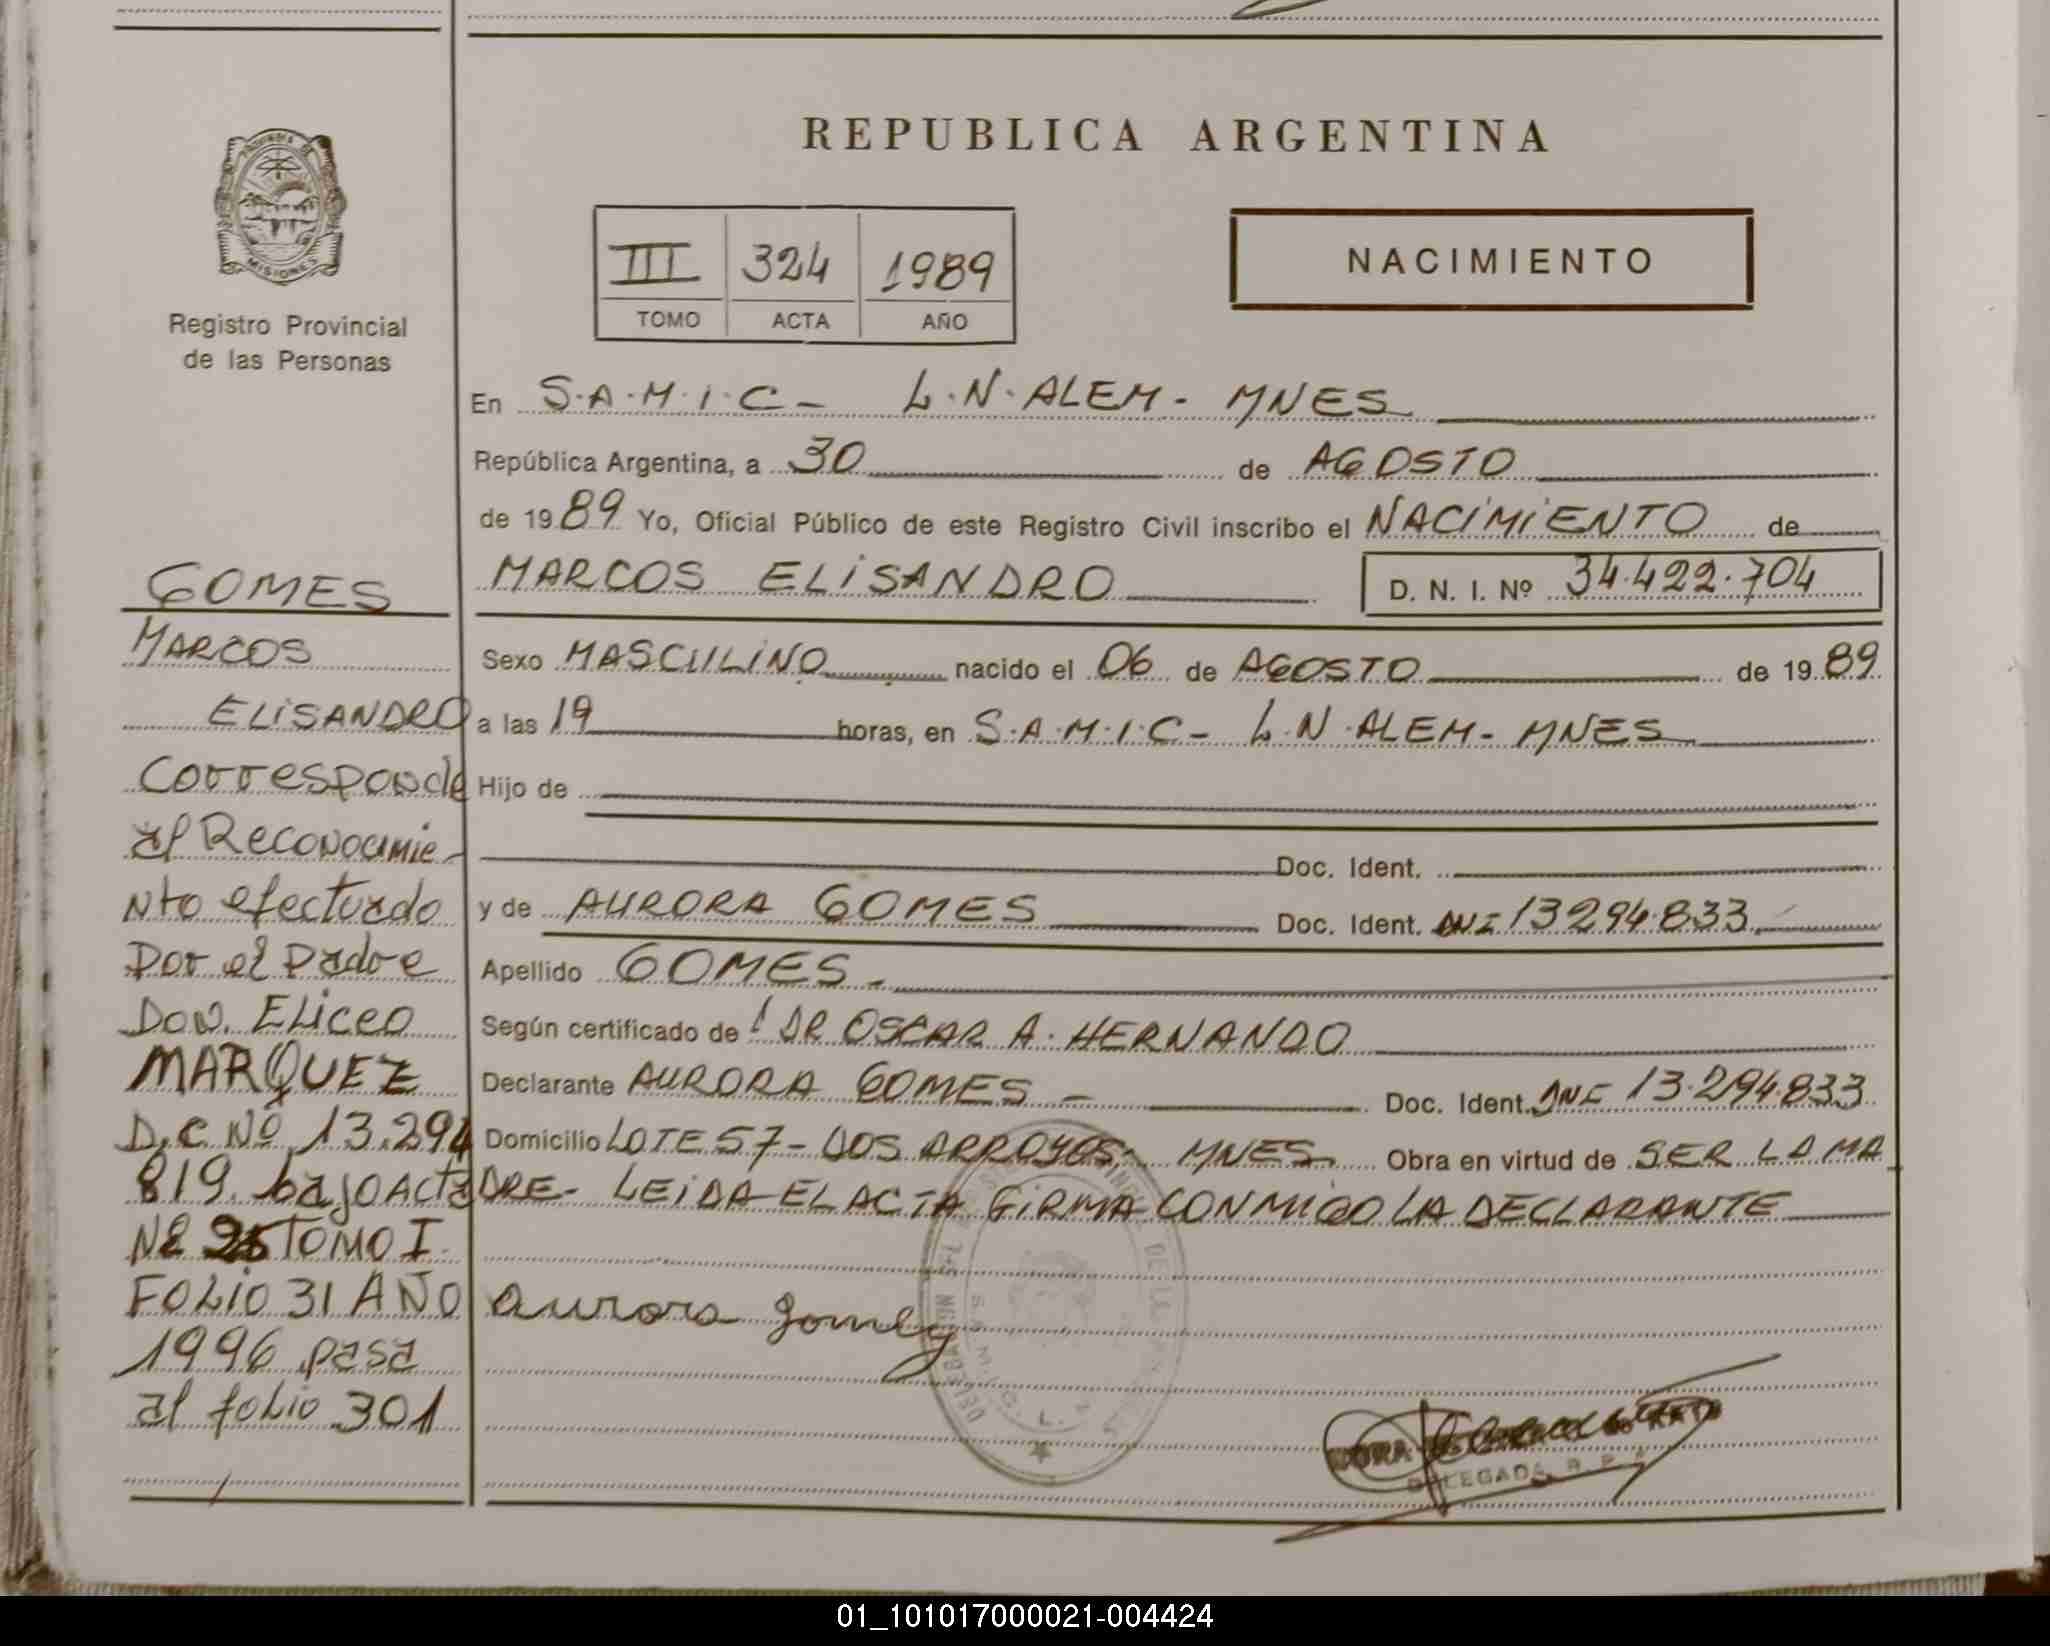 REPUBLICA ARGENTINA
PROVINCIA DE
MISIONES
Registro Provincial
de las Personas
III 324 1989
TOMO ACTA AÑO
NACIMIENTO
En S.A.M.I.C - L.N.ALEM - MNES
República Argentina, a 30 de AGOSTO
de 1989 Yo, Oficial Público de este Registro Civil inscribo el NACIMIENTO de
MARCOS ELISANDRO D. N. I. Nº 34.422.704
Sexo MASCULINO nacido el 06 de AGOSTO de 1989
a las 19 horas, en S.A.M.I.C - L.N.ALEM - MNES
Hijo de
Doc. Ident.
y de AURORA GOMES Doc. Ident. DNI 13294.833
Apellido GOMES -
Según certificado de DR OSCAR A. HERNANDO
Declarante AURORA GOMES - Doc. Ident. DNI 13.294.833
Domicilio LOTE 57 - DOS ARROYOS, MNES Obra en virtud de SER LA MA
DRE - LEIDA EL ACTA FIRMA CONMIGO LA DECLARANTE
Aurora Gomes
DELEGADA R. P.
GOMES
MARCOS
ELISANDRO
Corresponde
al Reconocimie-
nto efectuado
Por el Padre
Don. ELiceo
MARQUEZ
D.C Nº 13.294
819. bajo Acta
Nº 25 TOMO I
FOLIO 31 AÑO
1996 pasa
al folio 301
01_101017000021-004424